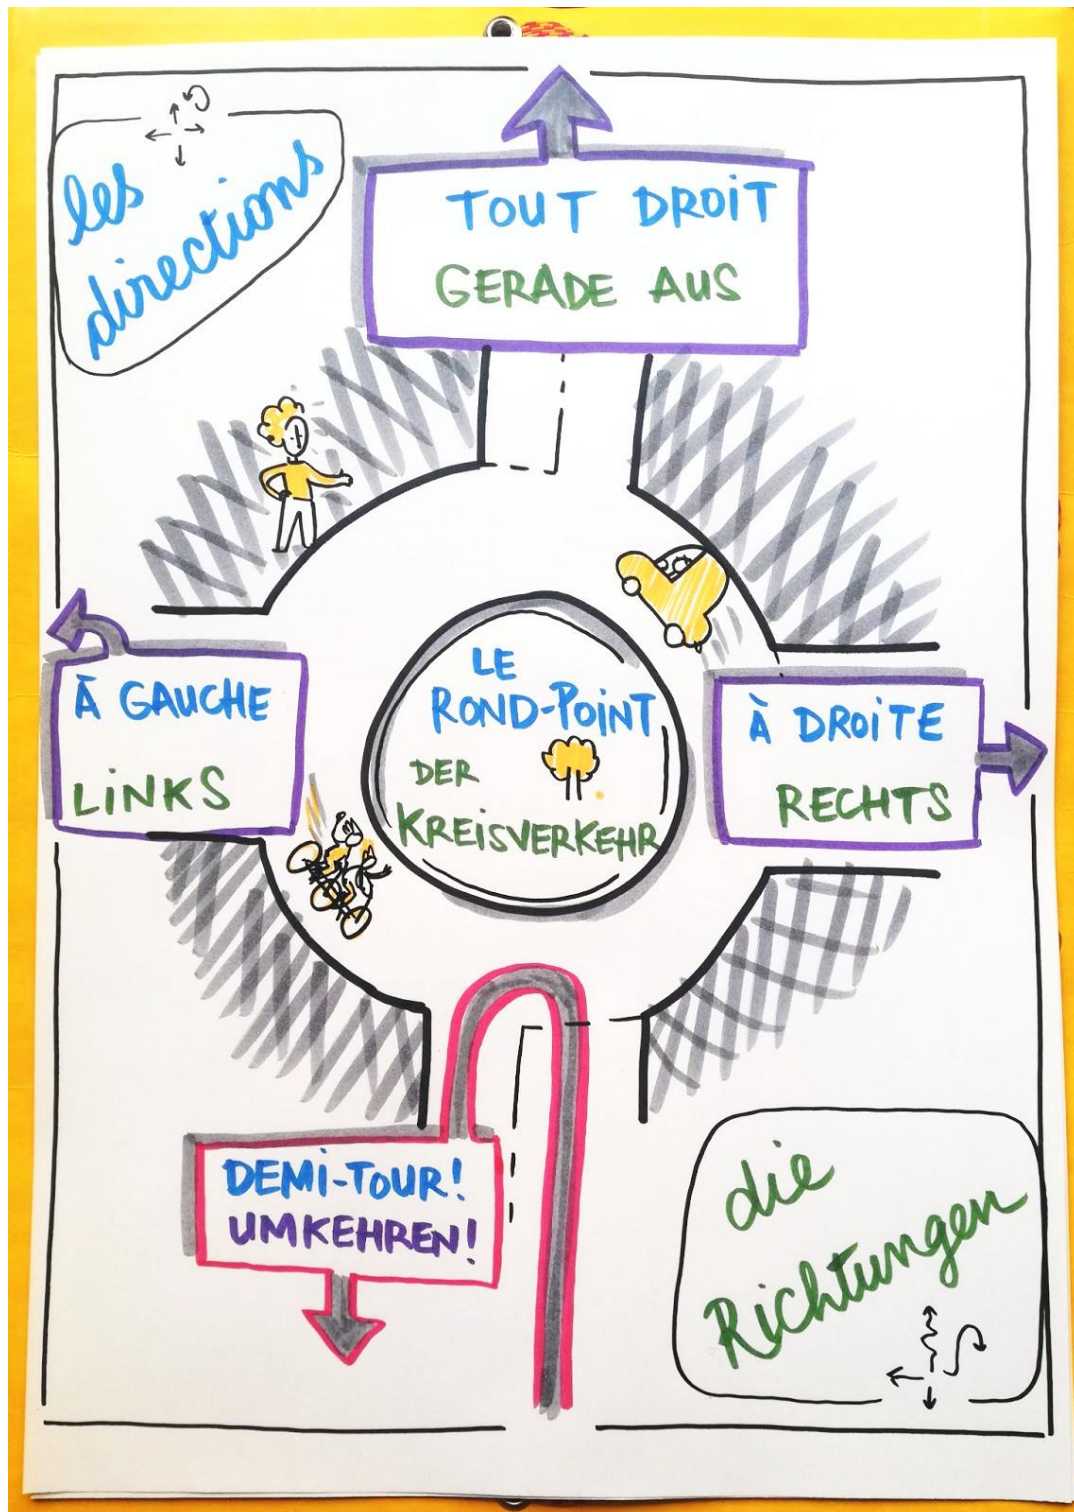 les
directions
TOUT DROIT
GERADE AUS
À GAUCHE
LINKS
LE
ROND-POINT
DER
KREISVERKEHR
À DROITE
RECHTS
DEMI-TOUR!
UMKEHREN!
die
Richtungen